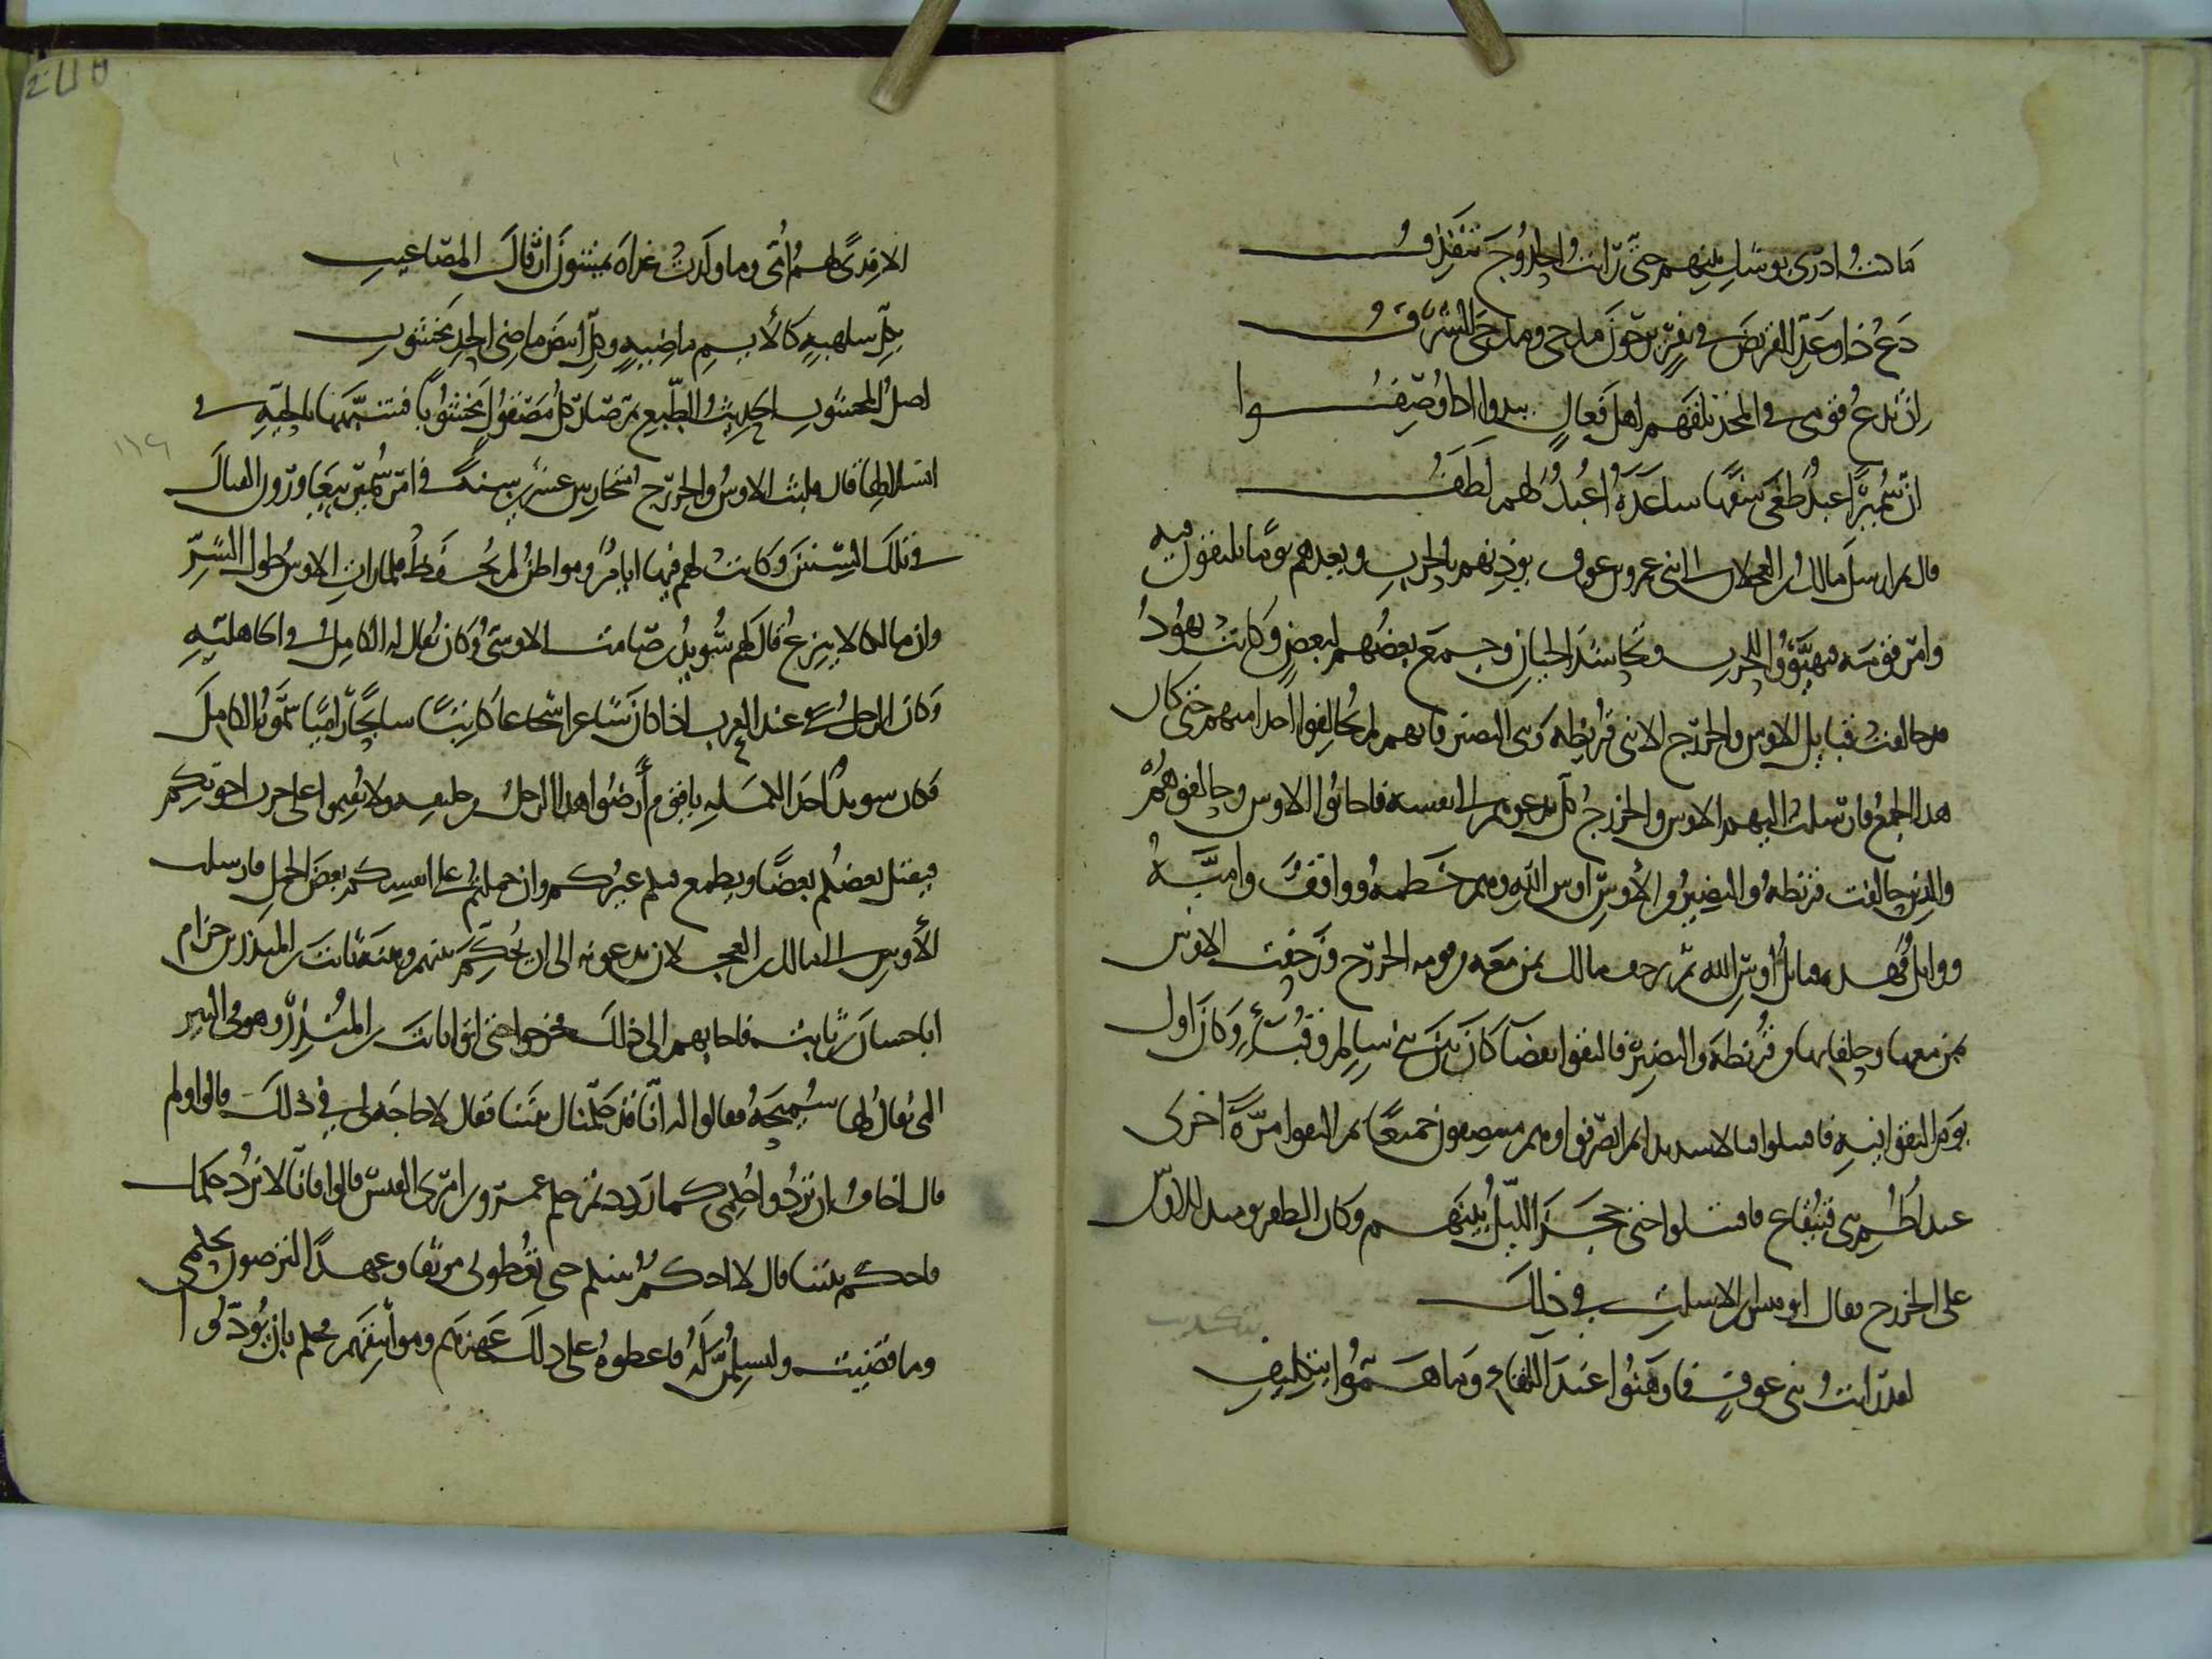 ما كنت ادرى بوشك بينهم حتى رايت الحدوج تنقذف
دع ذا وعد القريض في نفر يرجون مدحى ومدحى الشرف
ان تدع قومى في المجد تلفهم اهل فعال يبدوا اذا وصفوا
ان سميرا عبد طغى سفها ساعده اعبد لهم نطف
قال ثم ارسل مالك بن العجلان الى بنى عمرو بن عوف يوذنهم بالحرب ويعدهم يوما يلتقون فيه
وامر قومه فتهيؤوا للحرب وتحاشد الحيان وجمع بعضهم لبعض وكانت يهود
قد حالفت قبايل الاوس والخزرج الا بنى قريظه وبنى النضير فانهم لم يحالفوا احدا منهم حتى كان
هذا الجمع فارسلت اليهم الاوس والخزرج كل يدعوهم الى نفسه فاجابوا الاوس وحالفوهم
والذين حالفت قريظه والنضير من الأوس اوس الله وهم خطمه وواقف واميه
ووايل فهذه قبايل اوس الله ثم زحف مالك بمن معه من قومه الخزرج وزحفت الاوس
بمن معها من حلفايها من قريظه والنضير فالتقوا بفضآ كان بين بنى سالم وقبآء وكان اول
يوم التقوا فيه فاقتتلوا قتالا شديدا ثم انصرفوا وهم منتصفون جميعا ثم التقوا مرة اخرى
عند اطم بنى قينقاع فاقتتلوا حتى حجز الليل بينهم وكان الظفر يوميذ للاوس
على الخزرج فقال ابو قيس بن الاسلت في ذلك
لقد رايت بنى عوف فما وهنوا عند اللقاء وما هموا بتكذيب
الا فدى لهم امى وما ولدت غداة يمشون ارقال المصاعيب
بكل سلهبه كالأيم ماضيه وكل ابيض ماضى الحد مخشوب
اصل المخشوب الحديث الطبع ثم صار كل مصقول مخشوبا فشبهها بالحيه في
انسلالها قال فلبثت الاوس والخزرج متحاربين عشرين سنة في امر سمير يتعاودون القتال
في تلك السنين وكانت لهم فيها ايام ومواطن لم تحفظ فلما رات الاوس طول الشر
وان مالكا لا ينزع قال لهم سويد بن صامت الاوسى وكان يقال له الكامل في الجاهليه
وكان الرجل عند العرب اذا كان شاعرا شجاعا كاتبا سابحا راميا سموه الكامل
فكان سويد احد الكمله يا قوم أرضوا هذا الرجل من حليفه ولا تقيموا على حرب اخوتكم
فيقتل بعضكم بعضا ويطمع فيكم غيركم وان حملتم على انفسكم بعض الحمل فارسلت
الأوس الى مالك بن العجلان يدعونه الى ان يحكم بينهم وبينه ثابت بن المنذر بن حرام
ابا حسان بن ثابت فاجابهم الى ذلك فخرجوا حتى اتوا ثابت بن المنذر وهو في البير
التى يقال لها سميحه فقالوا له انا قد حكمناك بيننا فقال لا حاجه لى في ذلك قالوا ولم
قال اخاف ان تردوا حكمى كما رددتم حكم عمرو بن امرى القيس قالوا فانا لا نرد حكمك
فاحكم بيننا قال لا احكم بينكم حتى تعطونى موثقا وعهدا لترضون بحكمى
وما قضيت ولتسلمن له فاعطوه على ذلك عهودهم ومواثيقهم فحكم بان يودى